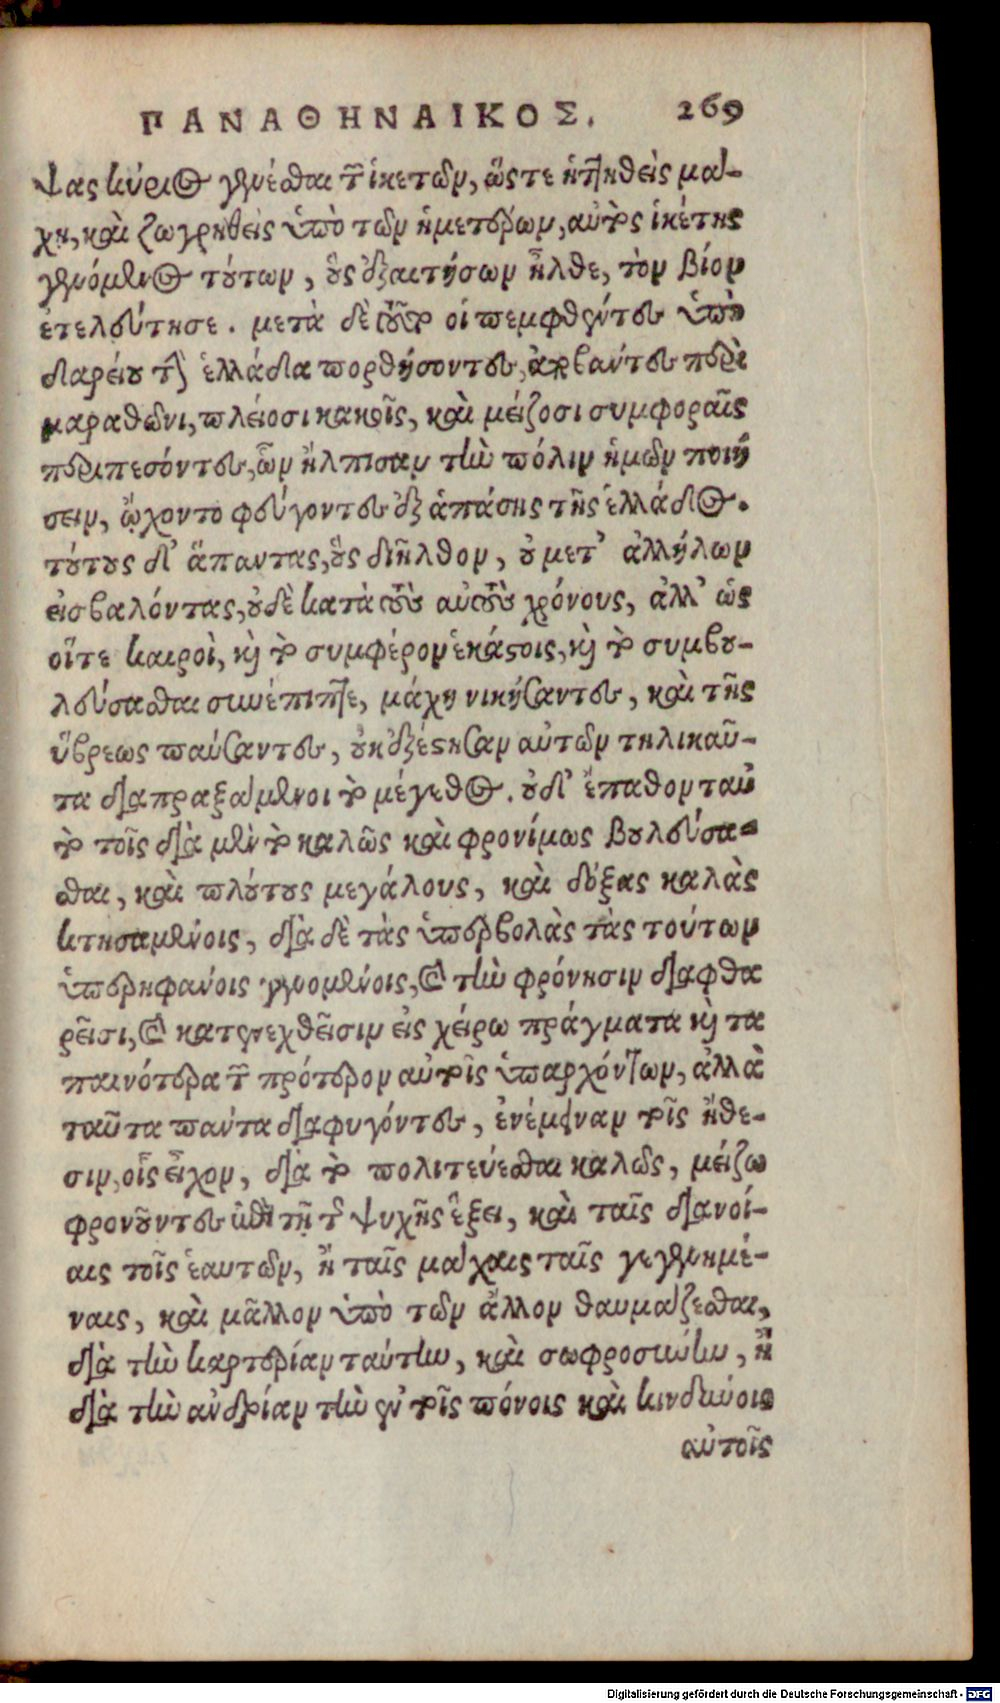 ΠΑΝΑΘΗΝΑΙΚΟΣ. 269
ψας κύριος γενέσθαι τῶν ἱκετῶν, ὥστε ἡττηθεὶς μά-
χῃ, καὶ ζωγρηθεὶς ὑπὸ τῶν ἡμετέρων, αὐτὸς ἱκέτης
γενόμενος τούτων, οὓς ἐξαιτήσων ἦλθε, τὸν βίον
ἐτελεύτησε. μετὰ δὲ τοῦτον οἱ πεμφθέντες ὑπὸ
δαρείου τὴν ἑλλάδα πορθήσοντες, ἀποβάντες περὶ
μαραθῶνι, πλείοσι κακοῖς, καὶ μείζοσι συμφοραῖς
περιπεσόντες, ὧν ἤλπισαν τὴν πόλιν ἡμῶν ποιή
σειν, ᾤχοντο φεύγοντες ἐξ ἁπάσης τῆς ἑλλάδος.
τούτους δ' ἅπαντας, οὓς διῆλθον, οὐ μετ' ἀλλήλων
εἰσβαλόντας, οὐδὲ κατὰ τοὺς αὐτοὺς χρόνους, ἀλλ' ὡς
οἵ τε καιροὶ, καὶ τὸ συμφέρον ἑκάστοις, καὶ τὸ συμβου-
λεύσασθαι συνέπιπτε, μάχῃ νικήσαντες, καὶ τῆς
ὕβρεως παύσαντες, οὐκ ἐξέστησαν αὐτῶν τηλικαῦ-
τα διαπραξάμενοι τὸ μέγεθος. οὐδ' ἔπαθον ταὐ
τὸ τοῖς διὰ μὲν τὸ καλῶς καὶ φρονίμως βουλεύσα-
σθαι, καὶ πλούτους μεγάλους, καὶ δόξας καλὰς
κτησαμένοις, διὰ δὲ τὰς ὑπερβολὰς τὰς τούτων
ὑπερηφάνοις γενομένοις, καὶ τὴν φρόνησιν διαφθα
ρεῖσι, καὶ κατενεχθεῖσιν εἰς χείρω πράγματα καὶ τα
πεινότερα τῶν πρότερον αὐτοῖς ὑπαρχόντων, ἀλλὰ
ταῦτα πάντα διαφυγόντες, ἐνέμειναν τοῖς ἤθε-
σιν, οἷς εἶχον, διὰ τὸ πολιτεύεσθαι καλῶς, μεῖζω
φρονοῦντες ἐπὶ τῇ τῆς ψυχῆς ἕξει, καὶ ταῖς διανοί-
αις τοῖς ἑαυτῶν, ἢ ταῖς μάχαις ταῖς γεγενημέ-
ναις, καὶ μᾶλλον ὑπὸ τῶν ἄλλον θαυμάζεσθαι,
διὰ τὴν καρτερίαν ταύτην, καὶ σωφροσύνην, ἢ
διὰ τὴν ἀνδρίαν τὴν ἐν τοῖς πόνοις καὶ κινδύνοις
αὐτοῖς
Digitalisierung gefördert durch die Deutsche Forschungsgemeinschaft - DFG